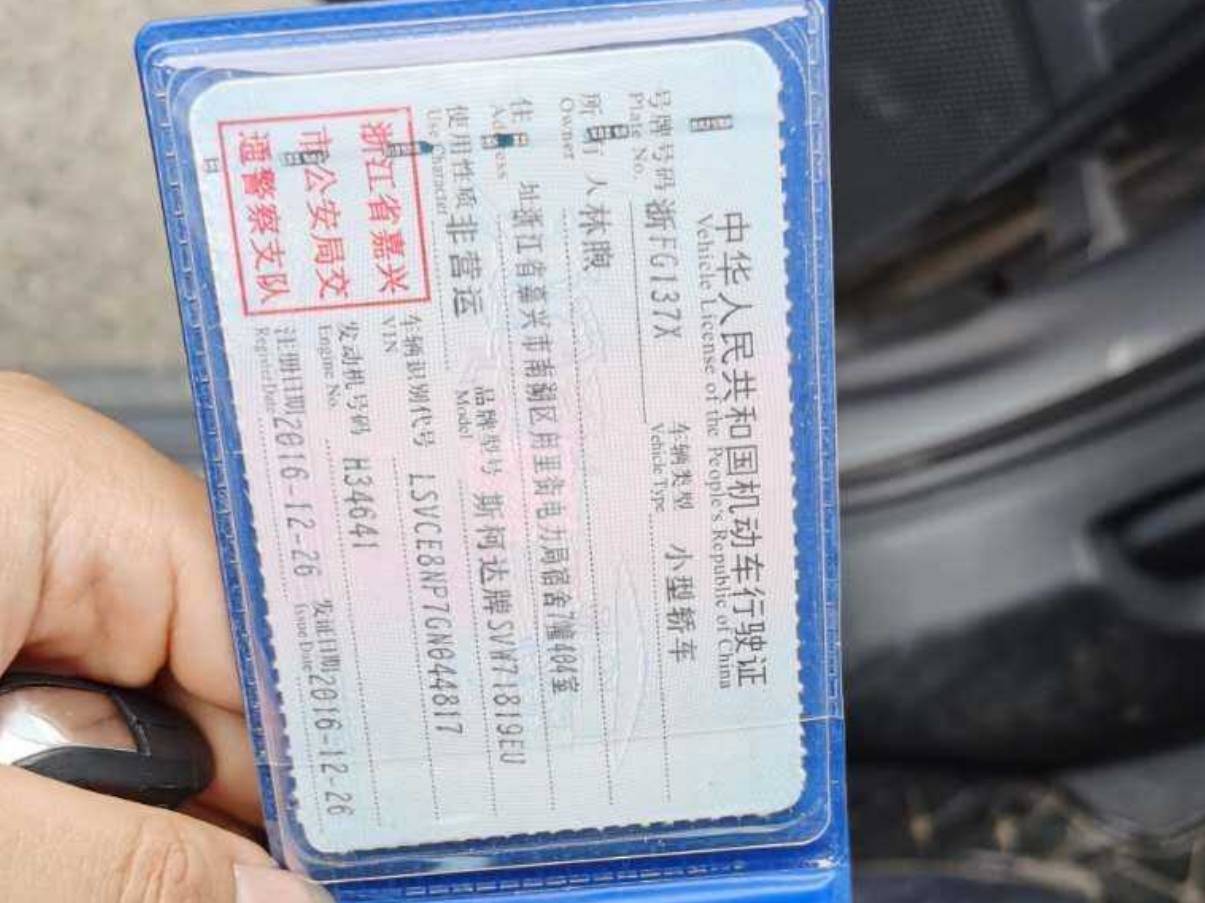 中华人民共和国机动车行驶证
Vehicle License of the People's Republic of China
号牌号码 浙FG137X 车辆类型 小型轿车
Plate No. Vehicle Type
所有人 林煦
Owner
住址 浙江省嘉兴市南湖区用里街电力局宿舍7幢404室
Address
使用性质 非营运 品牌型号 斯柯达牌SVW71819EU
Use Character Model
浙江省嘉兴
市公安局交
通警察支队
车辆识别代号 LSVCE8NP7GN044817
VIN
发动机号码 H34641
Engine No.
注册日期 2016-12-26 发证日期 2016-12-26
Register Date Issue Date